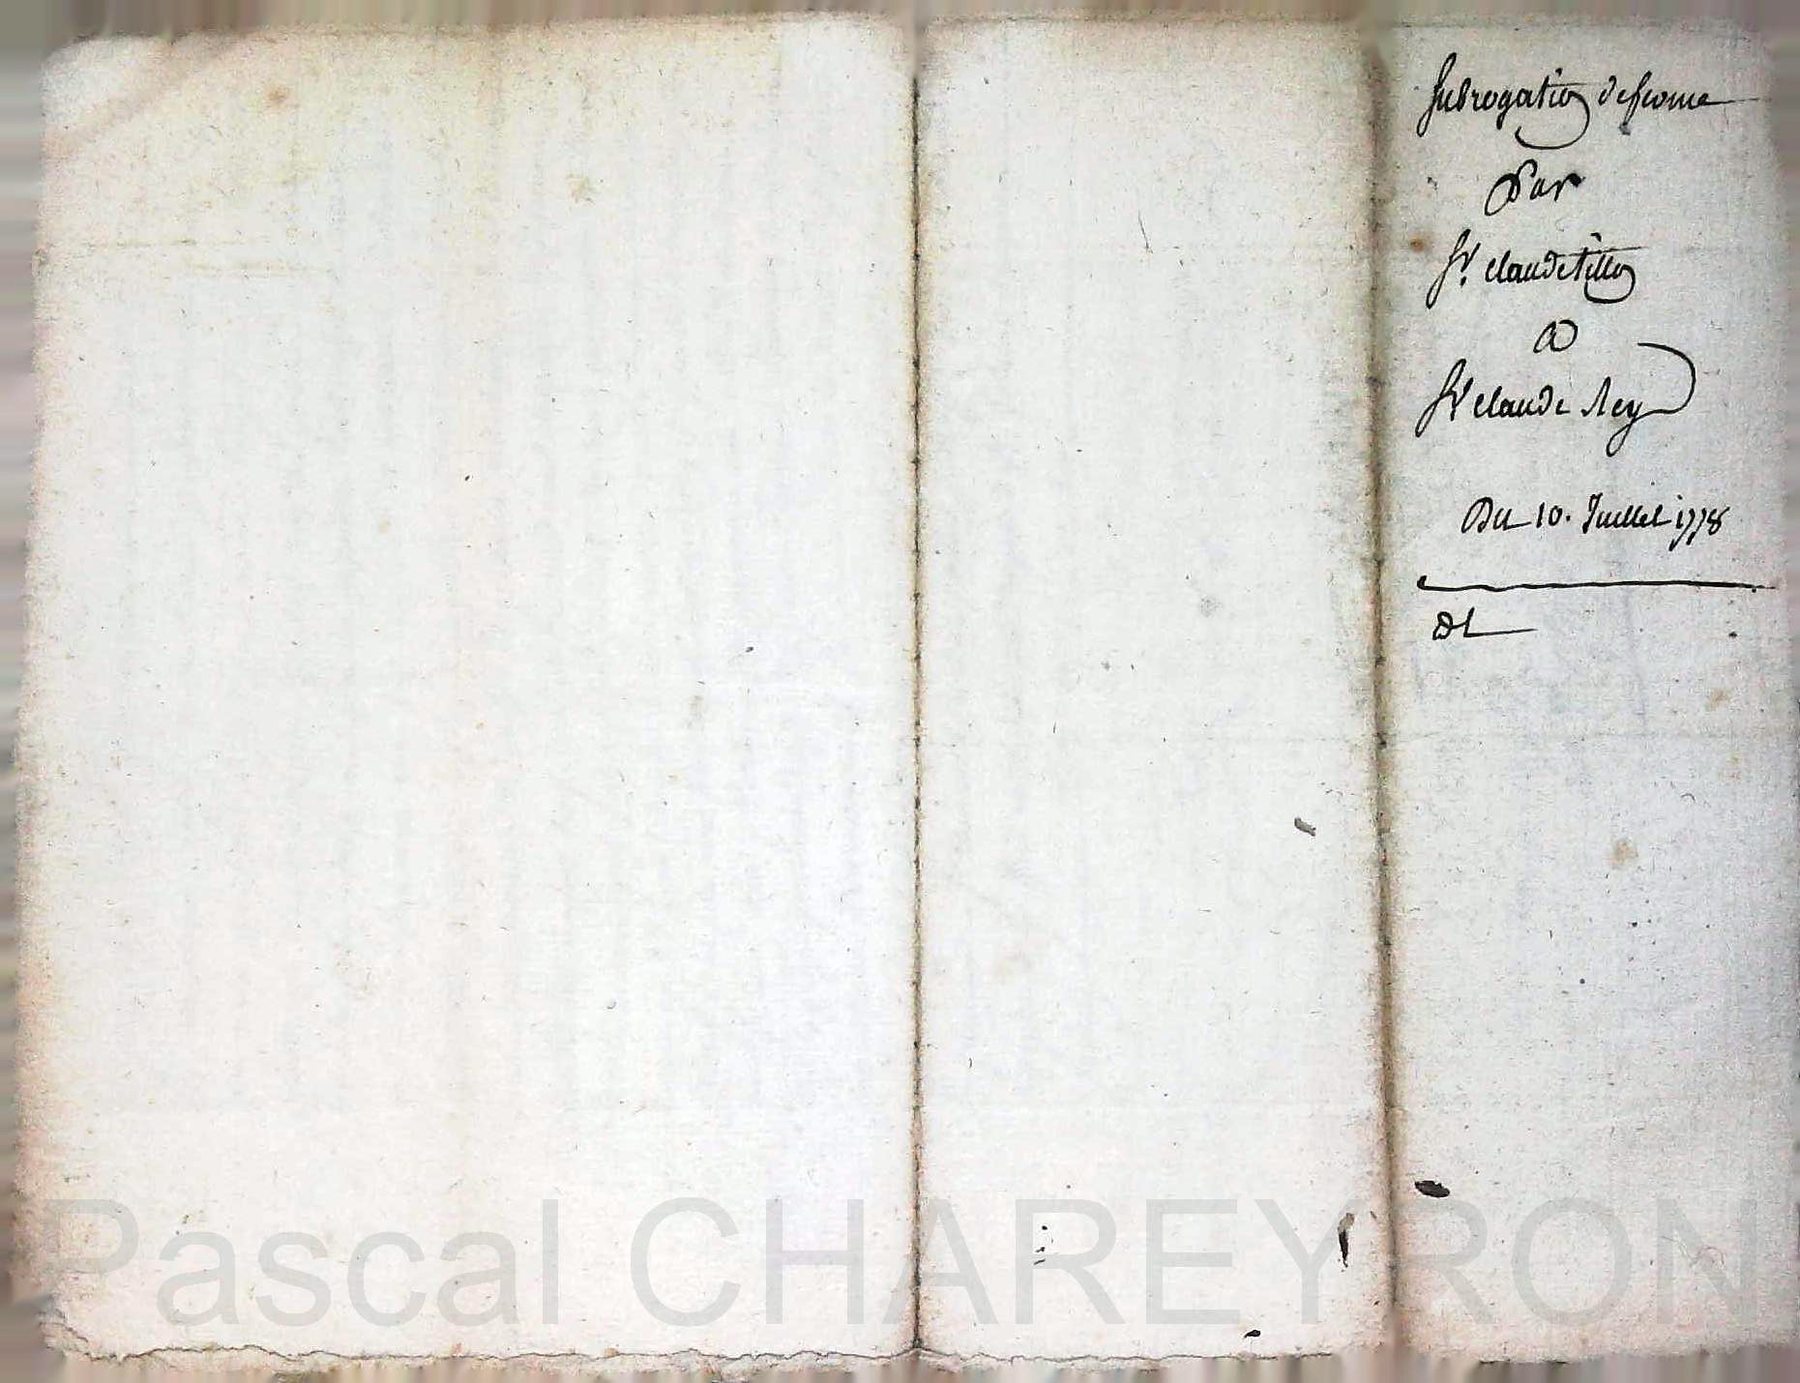 Subrogation de ferme
Par
Sr. claude tillon
a
Sr claude Rey
Du 10. Juillet 1778
Pascal CHAREYRON